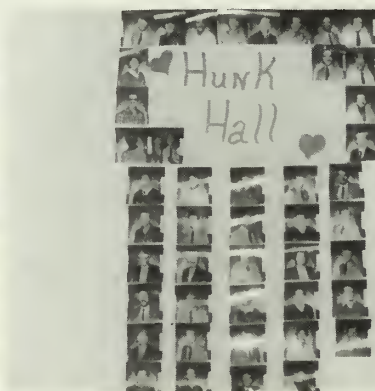 HunK
Hall